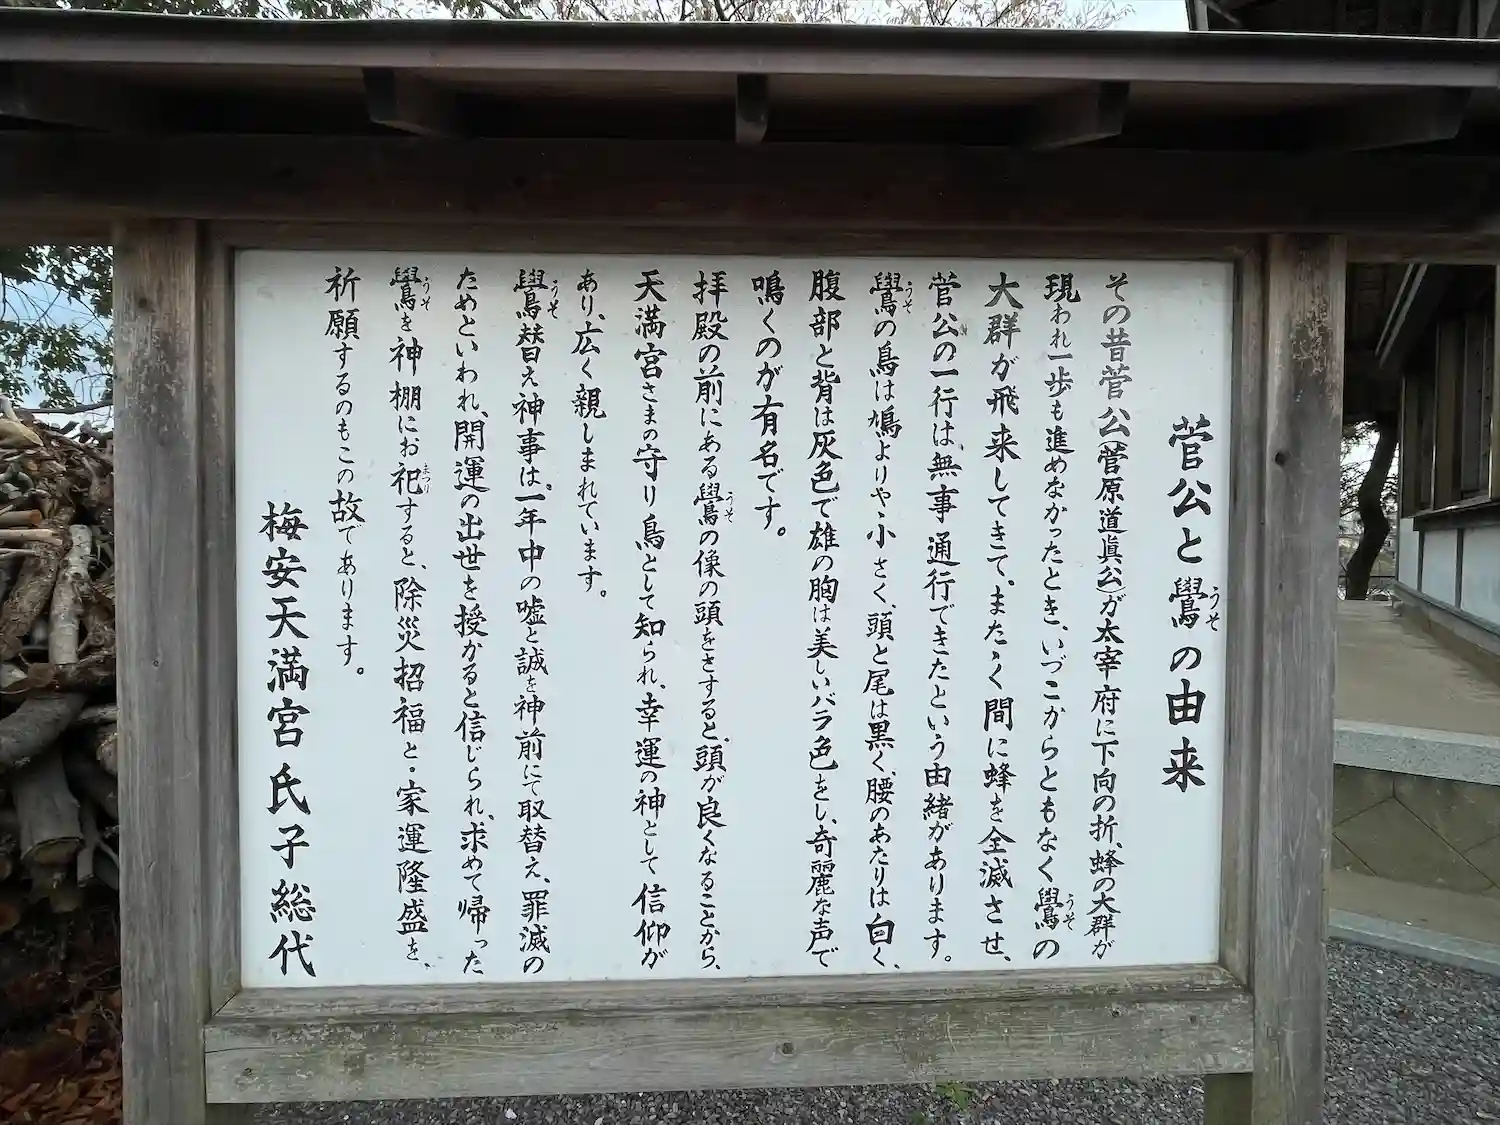 菅公と鷽の由来
その昔菅公(菅原道眞公)が太宰府に下向の折、蜂の大群が
現われ一歩も進めなかったとき、いづこからともなく鷽の
大群が飛来してきて、またゝく間に蜂を全滅させ、
菅公の一行は、無事通行できたという由緒があります。
鷽の鳥は鳩よりやゝ小さく、頭と尾は黒く、腰のあたりは白く、
腹部と背は灰色で雄の胸は美しいバラ色をし、奇麗な声で
鳴くのが有名です。
拝殿の前にある鷽の像の頭をさすると、頭が良くなることから、
天満宮さまの守り鳥として知られ、幸運の神として信仰が
あり、広く親しまれています。
鷽替え神事は、一年中の嘘と誠を神前にて取替え、罪滅の
ためといわれ、開運の出世を授かると信じられ、求めて帰った
鷽を神棚にお祀すると、除災招福と・家運隆盛を、
祈願するのもこの故であります。
梅安天満宮氏子総代